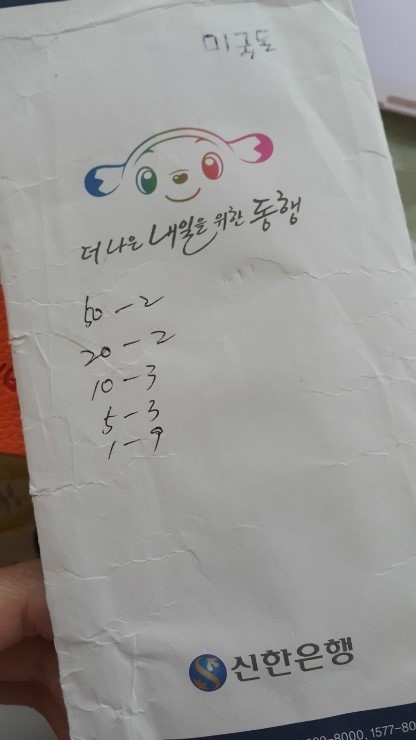 미국돈
더 나은 내일을 위한 동행
50-2
20-2
10-3
5-3
1-9
신한은행
-8000, 1577-80